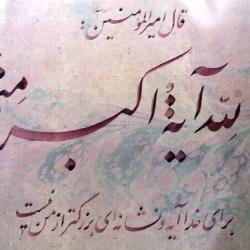 قال امیرالمؤمنین:
لله آیة اکبر من
برای خدا آیه و نشانه‌ای بزرگتر از من نیست